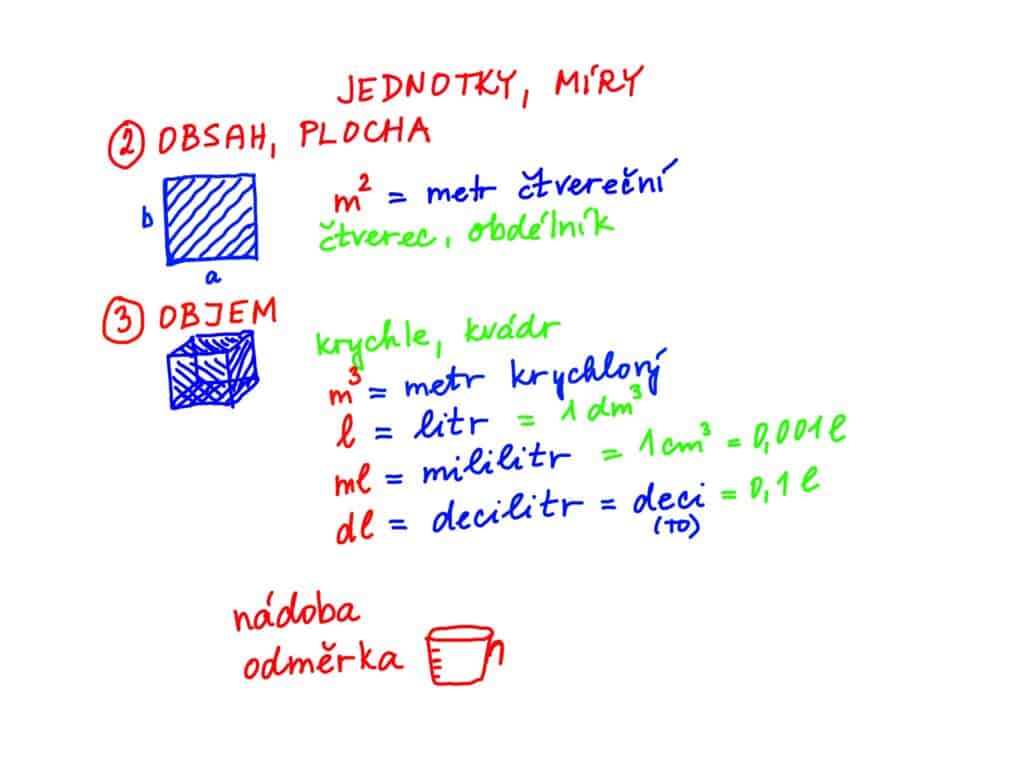 JEDNOTKY, MÍRY
2 OBSAH, PLOCHA
m² = metr čtvereční
b
čtverec, obdélník
a
3 OBJEM
krychle, kvádr
m³ = metr krychlový
l = litr = 1 dm³
ml = mililitr = 1 cm³ = 0,001 l
dl = decilitr = deci = 0,1 l
(TO)
nádoba
odměrka